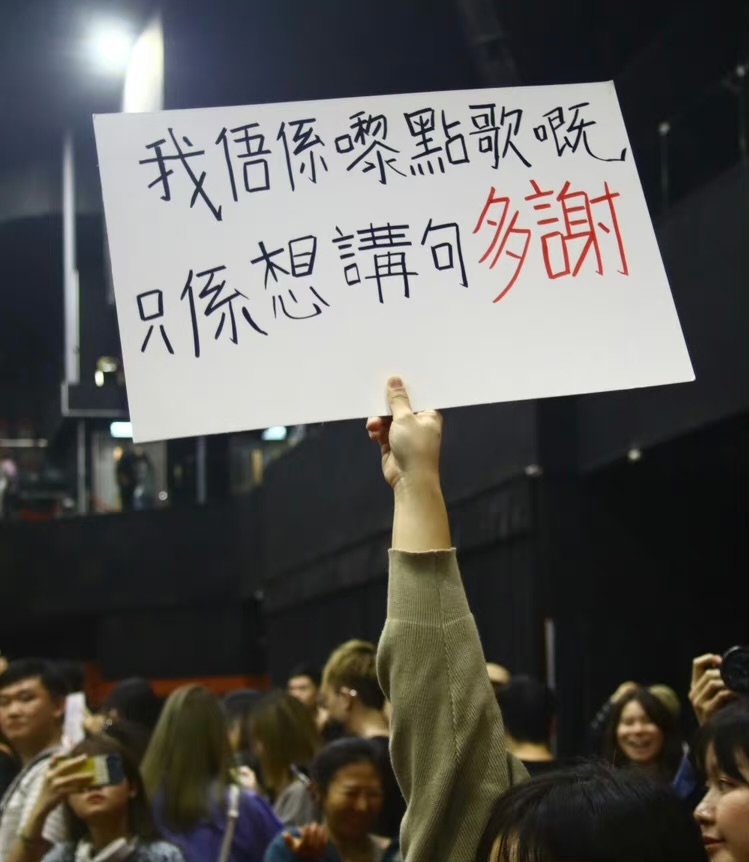 我俉係嚟點歌嘅,
只係想講句多謝